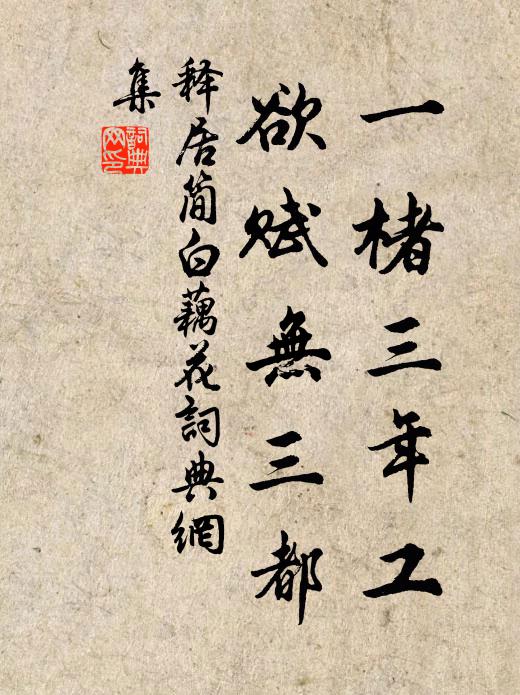 一楮三年工
欲赋無三都
释居简白藕花詞典網
集
詞典网印